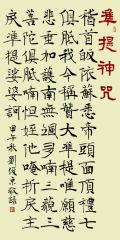 準提神咒
稽首皈依蘇悉帝頭面頂禮七
俱胝我今稱讚大準提唯願慈
悲垂加護南無颯哆喃三藐三
菩陀俱胝喃怛姪他唵折戾主
戾準提娑婆訶
甲午秋劉俊京敬錄